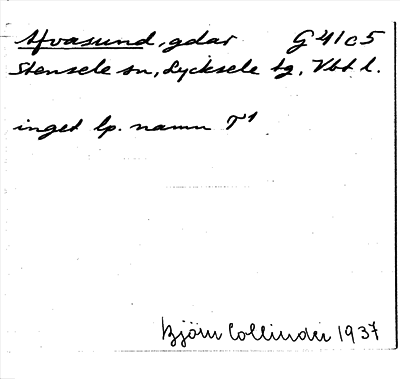 Afvasund, gdar G 41 c 5
Stensele sn, Lycksele tg, Vbt. l.
inget lp. namn T¹
Björn Collinder 1937